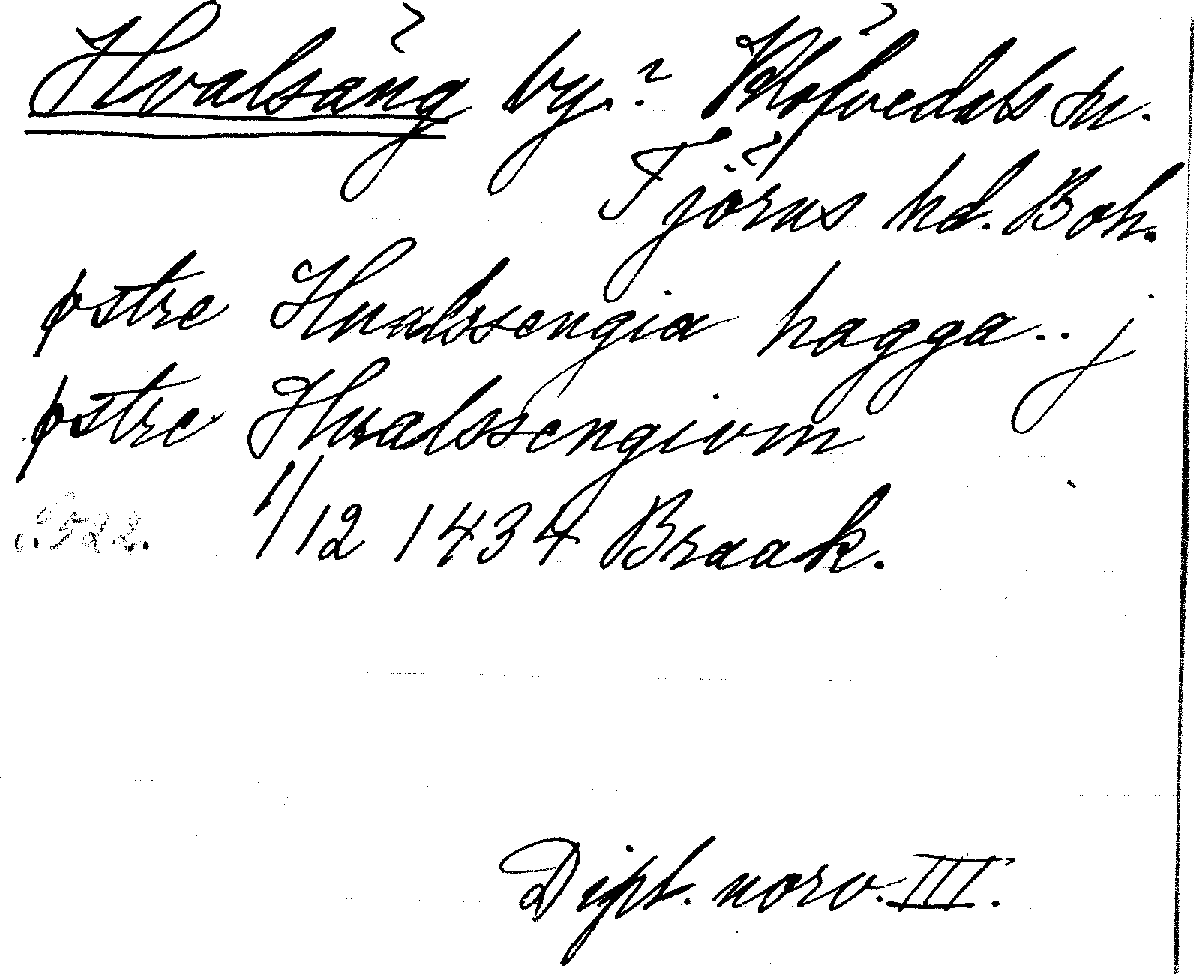 Hvalsäng by? Klöfvedals sn.
Tjörns hd. Boh.
østre Hualssengia hagga.. j
østre Hvalssengiom
S. 522. 1/12 1434 Braak.
Dipl. norv. III.